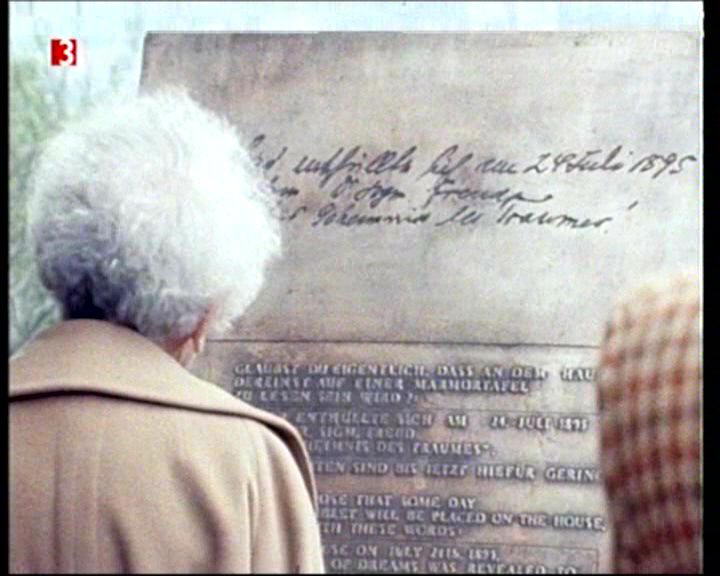 3
enthüllte sich am 24 Juli 1895
dem Dr Sigm Freud
Geheimnis des Traumes!
GLAUBST DU EIGENTLICH, DASS AN DEM HAU
DEREINST AUF EINER MARMORTAFEL
ZU LESEN SEIN WIRD?:
ENTHÜLLTE SICH AM 24. JULI 1895
SIGM. FREUD
EIMNIS DES TRAUMES".
TEN SIND BIS JETZT HIEFÜR GERING
OSE THAT SOME DAY
BLET WILL BE PLACED ON THE HOUSE,
TH THESE WORDS:
SE ON JULY 24th, 1895,
OF DREAMS WAS REVEALED TO